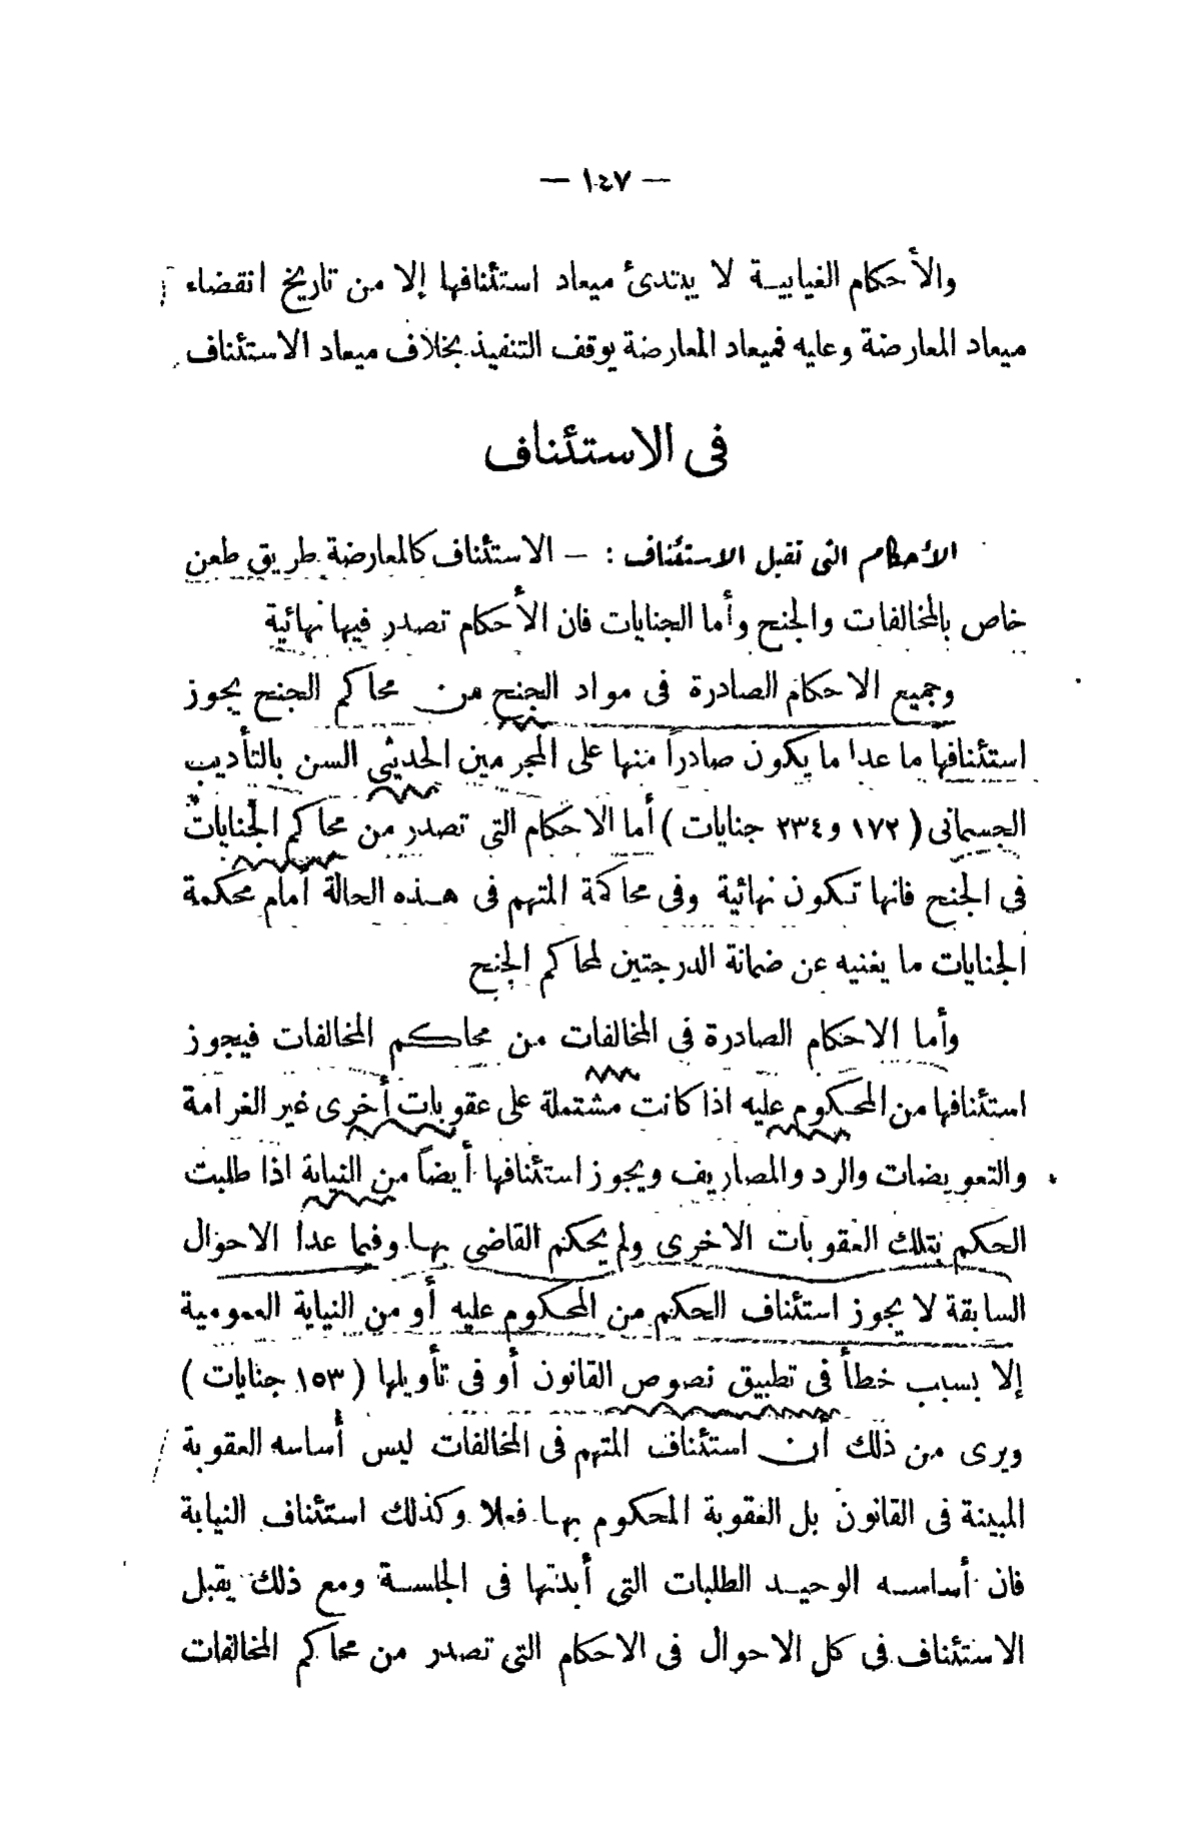 — ١٤٧ —
والأحكام الغيابية لا يبتدئ ميعاد استئنافها إلا من تاريخ انقضاء
ميعاد المعارضة وعليه فميعاد المعارضة يوقف التنفيذ بخلاف ميعاد الاستئناف
فى الاستئناف
الأحكام التى تقبل الاستئناف : — الاستئناف كالمعارضة طريق طعن
خاص بالمخالفات والجنح وأما الجنايات فان الأحكام تصدر فيها نهائية
وجميع الاحكام الصادرة فى مواد الجنح من محاكم الجنح يجوز
استئنافها ما عدا ما يكون صادراً منها على المجرمين الحديثى السن بالتأديب
الجسمانى ( ١٧٢ و ٢٣٤ جنايات ) أما الاحكام التى تصدر من محاكم الجنايات
فى الجنح فانها تكون نهائية وفى محاكمة المتهم فى هذه الحالة أمام محكمة
الجنايات ما يغنيه عن ضمانة الدرجتين لمحاكم الجنح
وأما الاحكام الصادرة فى المخالفات من محاكم المخالفات فيجوز
استئنافها من المحكوم عليه اذا كانت مشتملة على عقوبات أخرى غير الغرامة
والتعويضات والرد والمصاريف ويجوز استئنافها أيضاً من النيابة اذا طلبت
الحكم بتلك العقوبات الاخرى ولم يحكم القاضى بها وفيما عدا الاحوال
السابقة لا يجوز استئناف الحكم من المحكوم عليه أو من النيابة العمومية
إلا بسبب خطأ فى تطبيق نصوص القانون أو فى تأويلها ( ١٥٣ جنايات )
ويرى من ذلك أن استئناف المتهم فى المخالفات ليس أساسه العقوبة
المبينة فى القانون بل العقوبة المحكوم بها فعلا وكذلك استئناف النيابة
فان أساسه الوحيد الطلبات التى أبدتها فى الجلسة ومع ذلك يقبل
الاستئناف فى كل الاحوال فى الاحكام التى تصدر من محاكم المخالفات